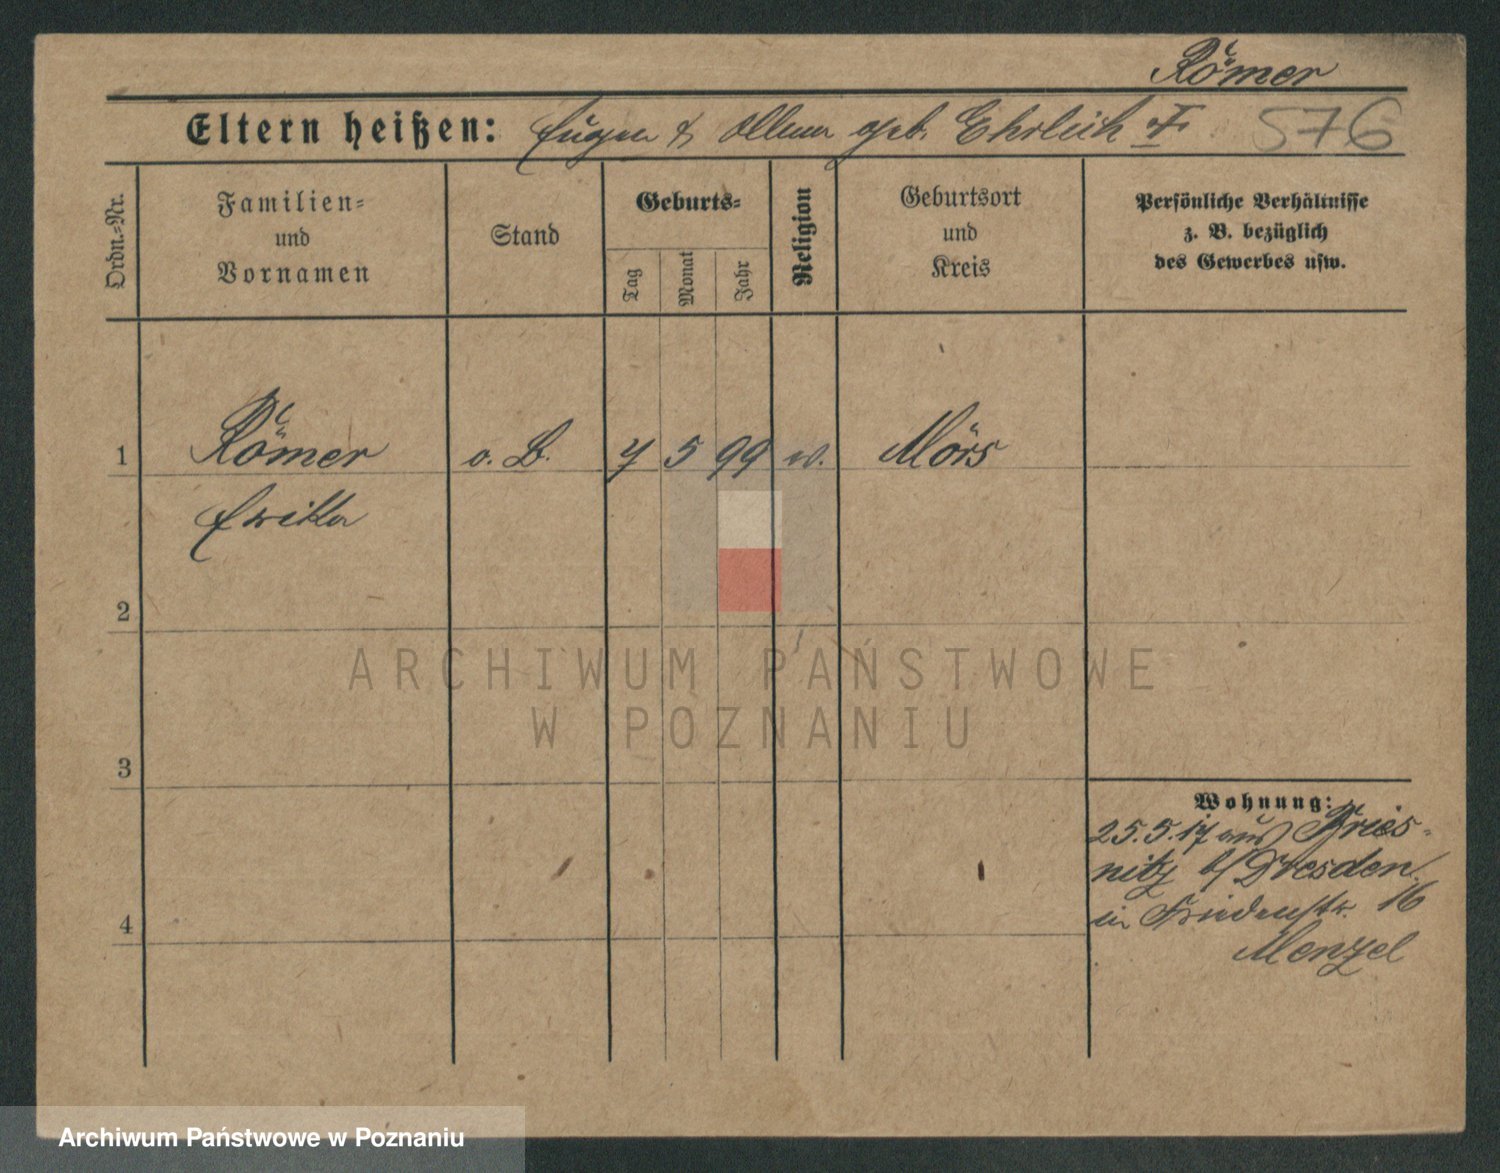 Römer
Eltern heißen: Eugen & geb. Ehrlich 576
Ordn.-Nr.
Familien-
und
Vornamen
Stand
Geburts-
Tag
Monat
Jahr
Religion
Geburtsort
und
Kreis
Persönliche Verhältnisse
z. B. bezüglich
des Gewerbes usw.
1 Römer o. B. 7 5 99 Mörs
Erika
2
ARCHIWUM PAŃSTWOWE
W POZNANIU
3
Wohnung:
25.5.17 aus Bries-
nitz b/Dresden.
in Friedenstr. 16
Menzel
4
Archiwum Państwowe w Poznaniu